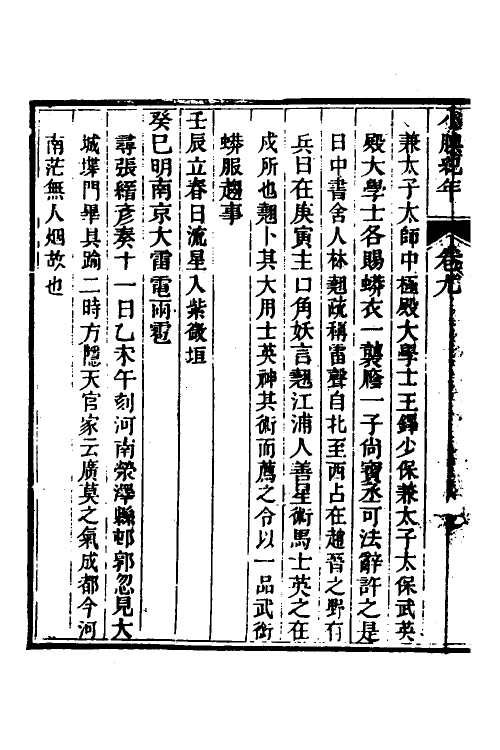 小腆紀年　卷九
兼太子太師中極殿大學士王鐸少保兼太子太保武英
殿大學士各賜蟒衣一襲廕一子尙寶丞可法辭許之是
日中書舍人林翹疏稱雷聲自北至西占在趙晉之野有
兵日在庚寅主口角妖言翹江浦人善星術馬士英之在
戍所也翹卜其大用士英神其術而薦之令以一品武銜
蟒服趨事
壬辰立春日流星入紫微垣
癸巳明南京大雷電雨雹
尋張縉彥奏十一日乙未午刻河南滎澤縣邨郭忽見大
城堞門畢具踰二時方隱天官家云廣莫之氣成都今河
南茫無人烟故也